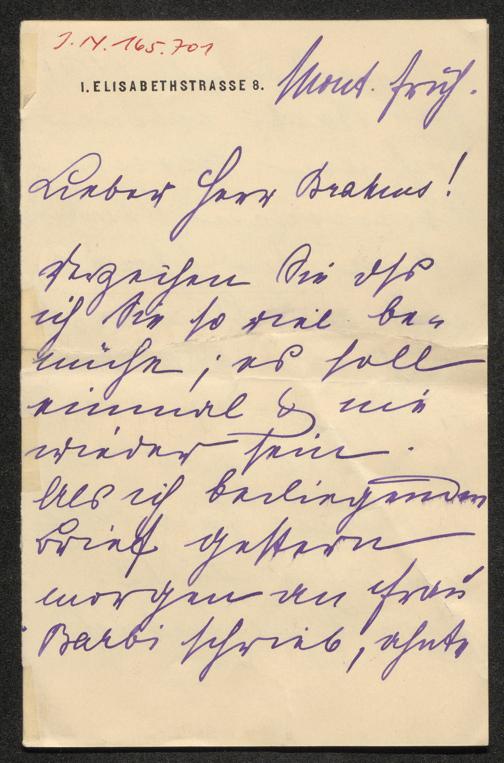 I.N. 165.701
I. ELISABETHSTRASSE 8.
Mont. früh.
Lieber Herr Brahms!
Verzeihen Sie dss
ich Sie so viel be-
mühe; es soll
einmal & nie
wieder sein.
Als ich beiliegenden
Brief gestern
morgen an Frau
Barbi schrieb, ahnte